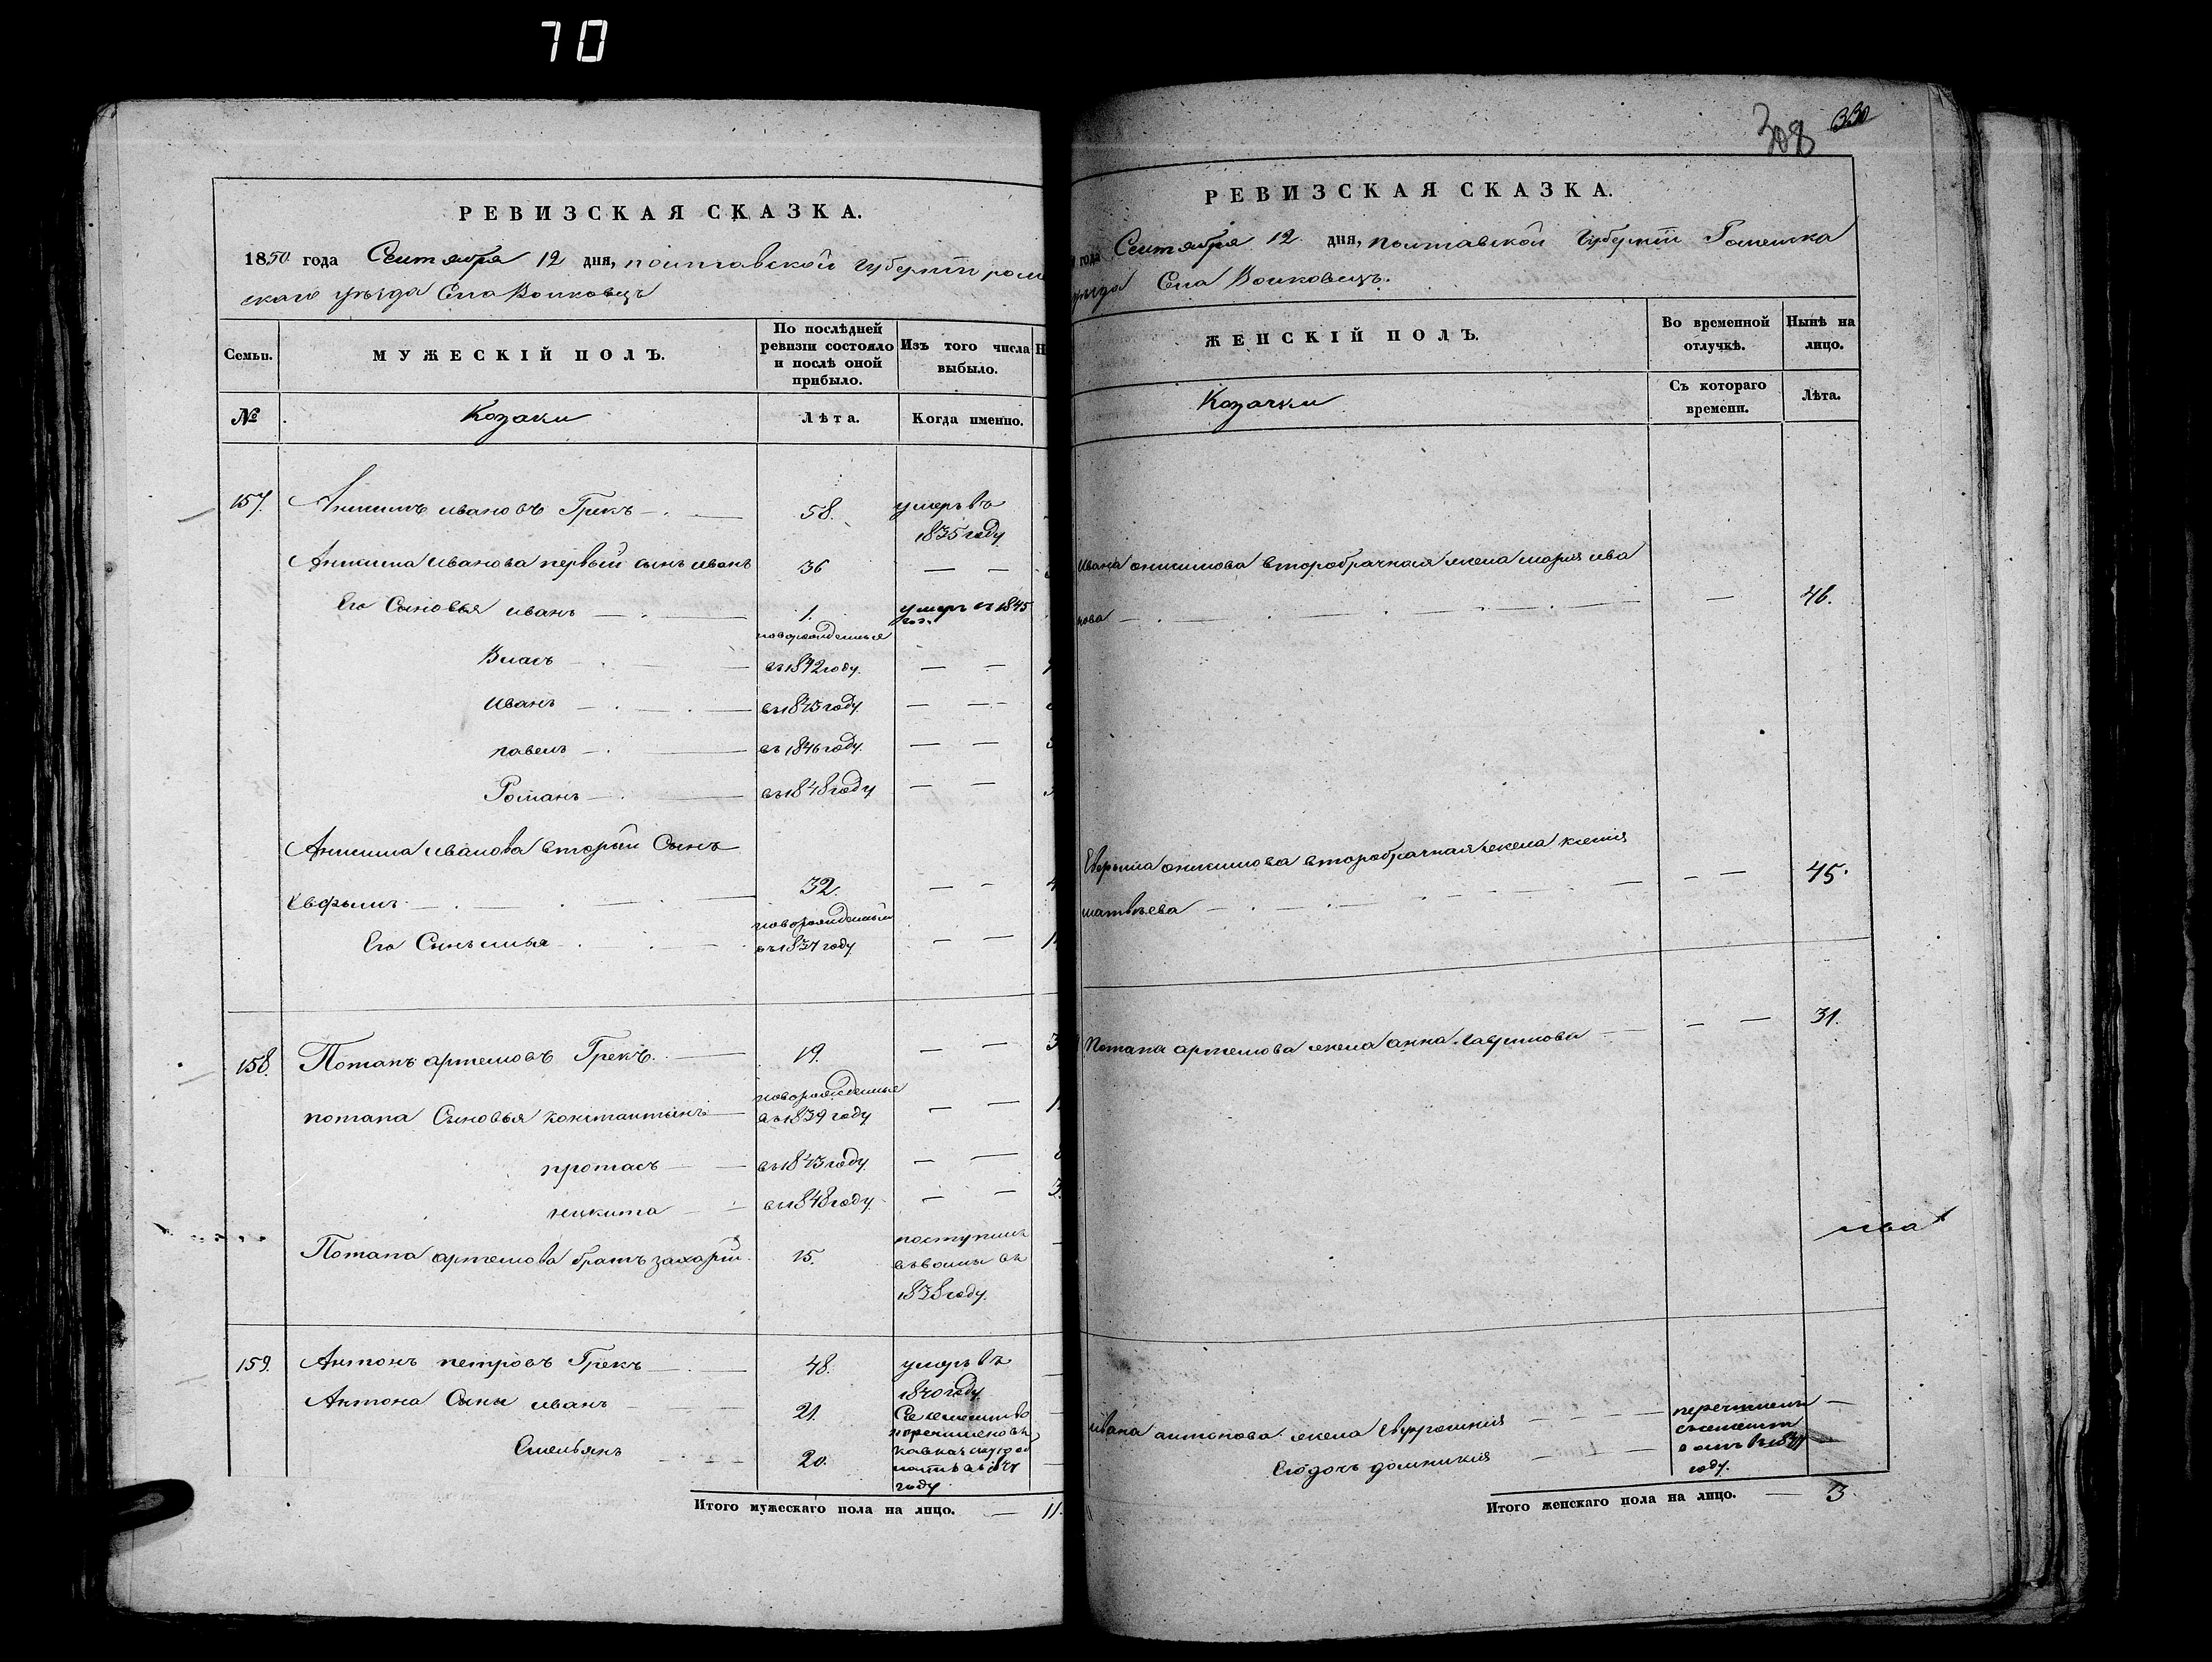 70
РЕВИЗСКАЯ СКАЗКА.
1850 года Сентября 12 дня, полтавской Губерніи ром
скаго уѣзда Села Волковецъ
Семьи.
МУЖЕСКІЙ ПОЛЪ.
По послѣдней
ревизіи состояло
и послѣ оной
прибыло.
Изъ того числа
выбыло.
Н
№
Козаки
Лѣта.
Когда именно.
157. Анисимъ ивановъ Грекъ 58. умеръ въ
1835 году
Анисима Иванова первый сынъ иванъ 36
Его Сыновья иванъ 1. умеръ въ 1845
новорожденныя
Власъ въ 1842 году.
иванъ въ 1843 году.
павелъ въ 1846 году.
Романъ въ 1848 году
Анисима иванова вторый Сынъ
Евфимъ 32.
новорожденный
Его Сынъ илья въ 1837 году
158. Потапъ артемовъ Грекъ. 19.
новорожденные
потапа Сыновья константинъ въ 1839 году
протасъ въ 1843 году.
никита въ 1848 году.
Потапа артемова братъ захарій 15. поступилъ
1838 году.
159. Антонъ петровъ Грекъ 48. умеръ въ
1840 году
Антона Сыны иванъ 21. Семейство
перечислено въ
Емельянъ 20.
году.
Итого мужескаго пола на лицо. 11.
308 330
РЕВИЗСКАЯ СКАЗКА.
года Сентября 12 дня, полтавской Губерніи Роменска
уѣзда Села Волковецъ.
ЖЕНСКІЙ ПОЛЪ.
Во временной
отлучкѣ.
Нынѣ на
лицо.
Козачки
Съ котораго
времени.
Лѣта.
Ивана онисимова второбрачная жена мария ива
нова 46.
онисимова второбрачная жена ксенія
матвѣева 45.
Потапа артемова жена анна 31.
ивана антонова жена Евфросинія перечислен
Его дочь домникия
году.
Итого женскаго пола на лицо. 3